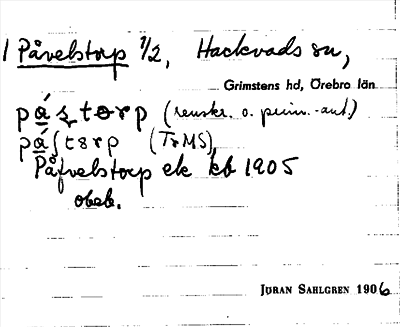 1 Påvelstorp 1/2, Hackvads sn,
Grimstens hd, Örebro län
(renskr. o. prim.-ant.)
(TrMS)
Påfvelstorp ek kb 1905
obeb.
JÖRAN SAHLGREN 1906